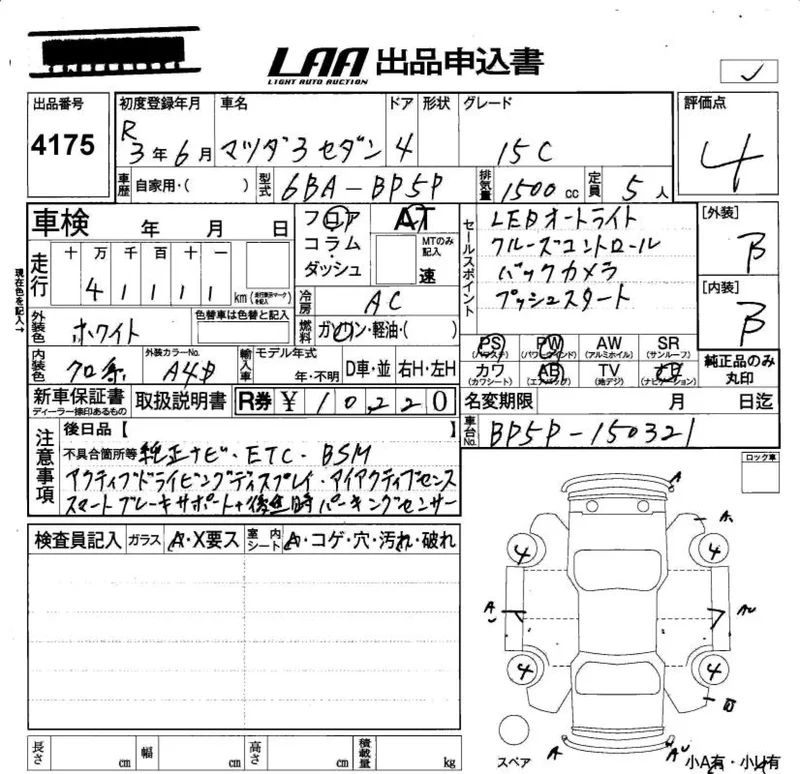 LAA 出品申込書
LIGHT AUTO AUCTION
出品番号 初度登録年月 車名 ドア 形状 グレード 評価点
4175 R3年6月 マツダ3セダン 4 15C 4
車歴 自家用・( ) 型式 6BA-BP5P 排気量 1500cc 定員 5人
車検 年 月 日 フロア AT セールスポイント LEDオートライト [外装]
コラム・ MTのみ記入 クルーズコントロール B
ダッシュ 速 バックカメラ
現在色を記入→ 走行 十 万 千 百 十 一 プッシュスタート [内装]
4 1 1 1 1 km (走行表示マークを記入) 冷房 AC B
外装色 ホワイト 色替車は色替と記入 燃料 ガソリン・軽油・( )
PS (パワステ) PW (パワーウインド) AW (アルミホイル) SR (サンルーフ)
内装色 クロ系 外装カラーNo. A4D 輸入車 モデル年式 年・不明 D車・並 右H・左H
カワ (カワシート) AB (エアバック) TV (地デジ) (ナビゲーション) 純正品のみ丸印
新車保証書 ディーラー捺印あるもの 取扱説明書 R券 ¥ 10,220 名変期限 月 日迄
車台No. BP5P-150321
注意事項 後日品【
不具合箇所等 純正ナビ・ETC・BSM
アクティブドライビングディスプレイ・アイアクティブセンス
スマートブレーキサポート+後進時パーキングセンサー
ロック車
検査員記入 ガラス A・X要ス 室内シート A・コゲ・穴・汚れ・破れ
A
A
4 4
A AU
4 4
B
A AU
スペア 小A有・小U有
長さ cm 幅 cm 高さ cm 積載量 kg